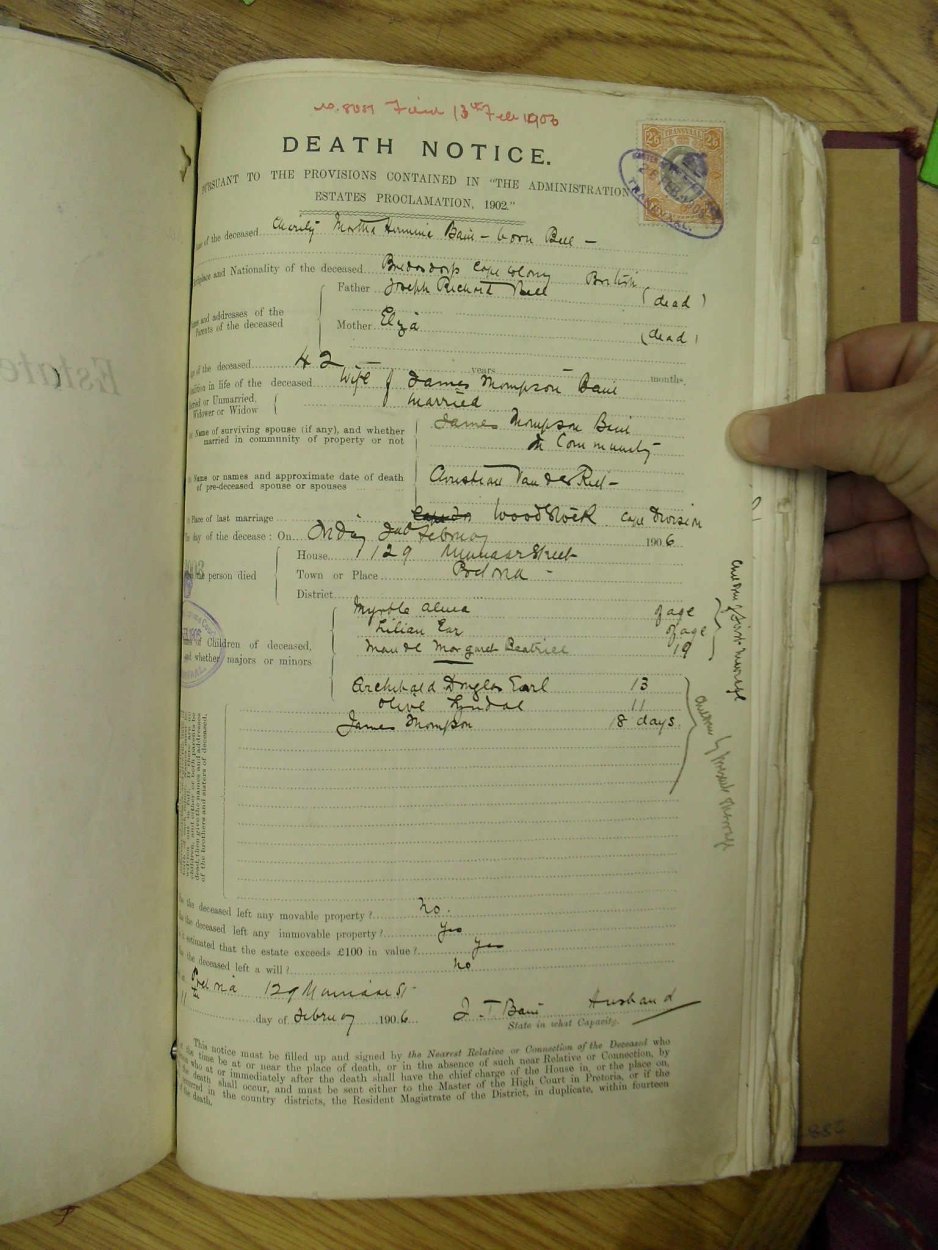 Filed 13th Feb 1906
DEATH NOTICE.
PURSUANT TO THE PROVISIONS CONTAINED IN "THE ADMINISTRATION
ESTATES PROCLAMATION, 1902."
TRANSVAAL
2/6 2/6
TRANSVAAL.
of the deceased Charity Martha Bain - born Bell -
and Nationality of the deceased Bredasdorp Cape Colony British
Father Joseph Richard Bell (dead)
and addresses of the
Parents of the deceased
Mother Eliza (dead)
of the deceased 42 years months
in life of the deceased Wife of James Thompson Bain
or Unmarried,
Widower or Widow
married
Name of surviving spouse (if any), and whether
married in community of property or not
James Thompson Bain
In Community
Name or names and approximate date of death
of pre-deceased spouse or spouses
Christian Van der Riet -
Place of last marriage Woodstock Cape Division
day of the decease : On February 1906
House 129 Street
the person died Town or Place Pretoria -
District
of Children of deceased,
and whether majors or minors
Myrtle Alma of age
Lilian of age
Maude Margaret Beatrice 19
Children of first marriage
Archibald Douglas Earl 13
Olive 11
James Thompson 18 days.
Children by present marriage
dead, then give the names and addresses
of the brothers and sisters of deceased.
the deceased left any movable property ? No.
the deceased left any immovable property ? Yes
estimated that the estate exceeds £100 in value ? Yes
the deceased left a will ? No
Pretoria 129
11th day of February 1906 J. T. Bain Husband
State in what Capacity.
This notice must be filled up and signed by the Nearest Relative or Connection of the Deceased who
the time be at or near the place of death, or in the absence of such near Relative or Connection, by
who at or immediately after the death shall have the chief charge of the House in, or the place on,
the death shall occur, and must be sent either to the Master of the High Court in Pretoria, or if the
occurred in the country districts, the Resident Magistrate of the District, in duplicate, within fourteen
the death.